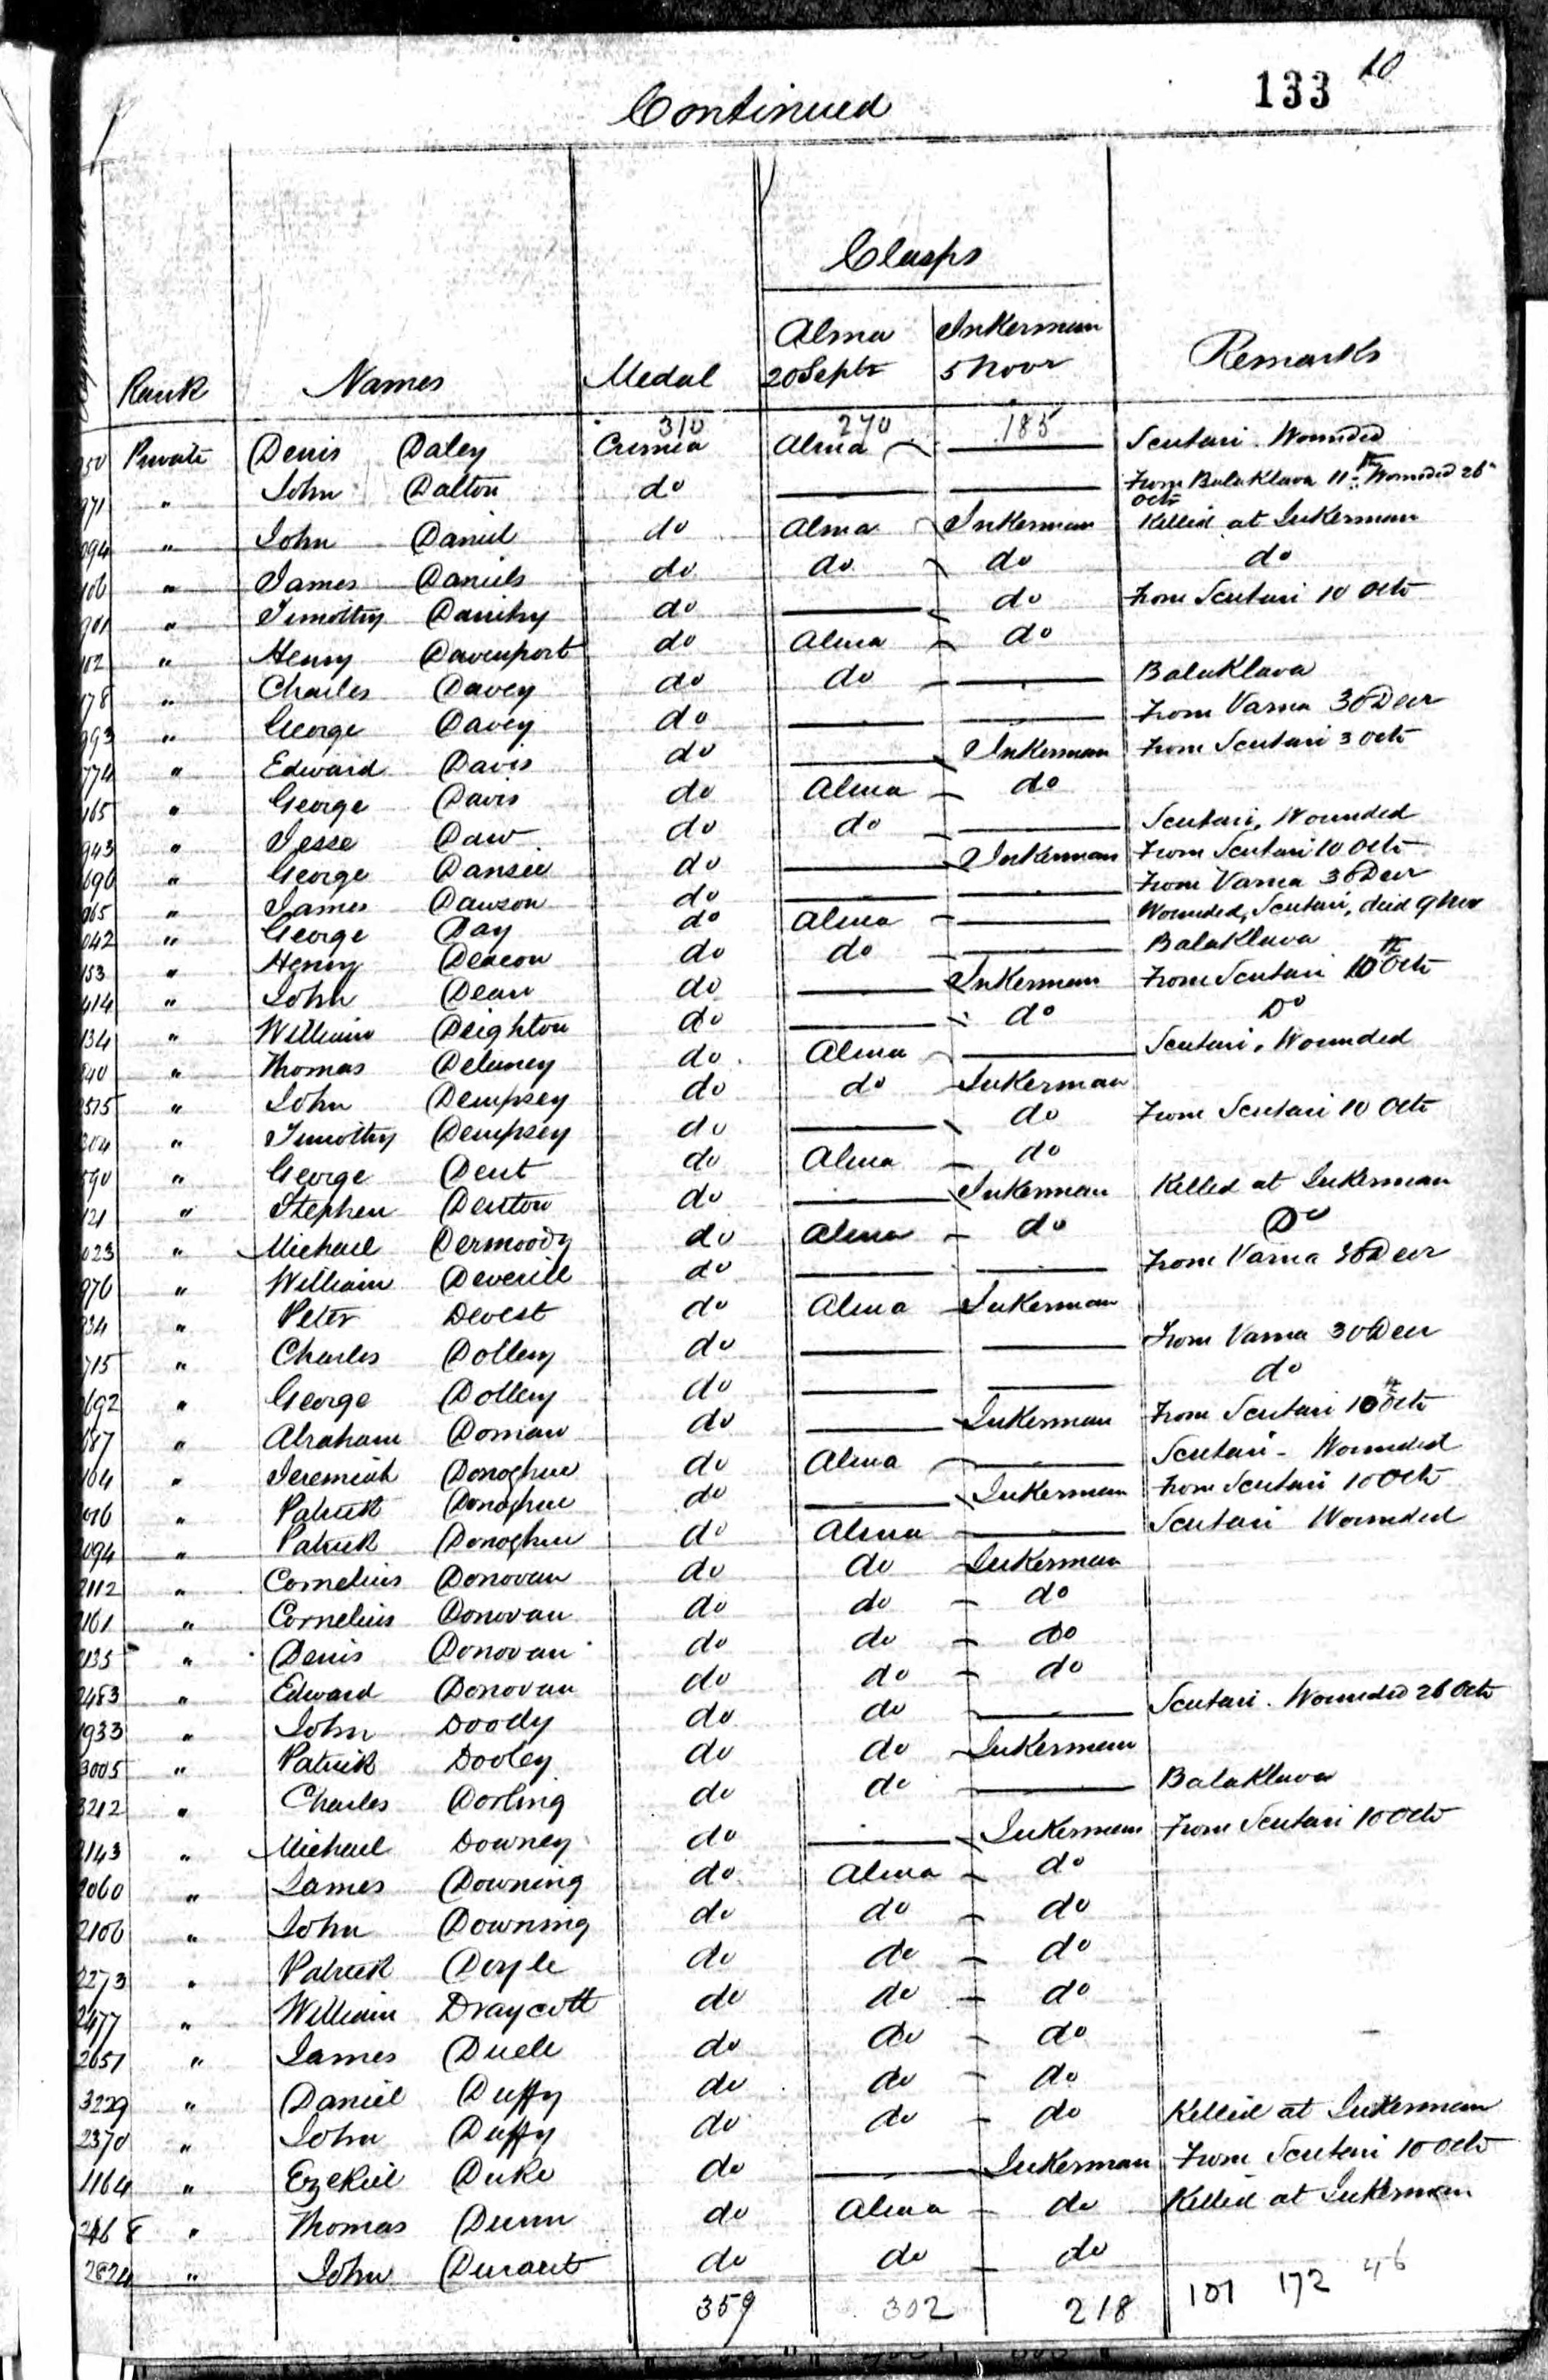 133 10
Continued
Clasps
Alma Inkerman
Rank Names Medal 20 Septr 5 Novr Remarks
310 270 185
950 Private Denis Daley Crimea Alma — Scutari. Wounded
971 " John Dalton do — — From Balaklava 11th Wounded 26 Octr
094 " John Daniel do Alma Inkerman Killed at Inkerman
106 " James Daniels do do do do
901 " Timothy Danihy do — do From Scutari 10 Octr
102 " Henry Davenport do Alma do
178 " Charles Davey do do — Balaklava
993 " George Davey do — — From Varna 30 Decr
774 " Edward Davis do — Inkerman From Scutari 3 Octr
165 " George Davis do Alma do
943 " Jesse Daw do do — Scutari, Wounded
696 " George Dansie do — Inkerman From Scutari 10 Octr
065 " James Dawson do — — From Varna 30 Decr
042 " George Day do Alma — Wounded, Scutari, died 9 Nov
153 " Henry Deacon do do — Balaklava
414 " John Dean do — Inkerman From Scutari 10th Octr
134 " William Deighton do — do Do
840 " Thomas Delaney do Alma — Scutari, Wounded
2575 " John Dempsey do do Inkerman
304 " Timothy Dempsey do — do From Scutari 10 Octr
590 " George Dent do Alma do
121 " Stephen Denton do — Inkerman Killed at Inkerman
023 " Michael Dermoody do Alma do Do
976 " William Deverill do — — From Varna 30 Decr
934 " Peter Devest do Alma Inkerman
715 " Charles Dollery do — — From Varna 30 Decr
692 " George Dollery do — — do
687 " Abraham Doman do — Inkerman From Scutari 10th Octr
104 " Jeremiah Donoghue do Alma — Scutari - Wounded
" Patrick Donoghue do — Inkerman From Scutari 10 Octr
094 " Patrick Donoghue do Alma — Scutari Wounded
2112 " Cornelius Donovan do do Inkerman
2161 " Cornelius Donovan do do do
2135 " Denis Donovan do do do
2483 " Edward Donovan do do do
1933 " John Doody do do — Scutari. Wounded 26 Octr
3005 " Patrick Dooley do do Inkerman
3212 " Charles Dorling do do — Balaklava
2143 " Michael Downey do — Inkerman From Scutari 10 Octr
2060 " James Downing do Alma do
2106 " John Downing do do do
2273 " Patrick Doyle do do do
2477 " William Draycott do do do
2651 " James Duell do do do
3229 " Daniel Duffy do do do
2370 " John Duffy do do do Killed at Inkerman
1164 " Ezekiel Duke do — Inkerman From Scutari 10 Octr
2468 " Thomas Dunn do Alma do Killed at Inkerman
2824 " John Durant do do do
359 302 218 101 172 46